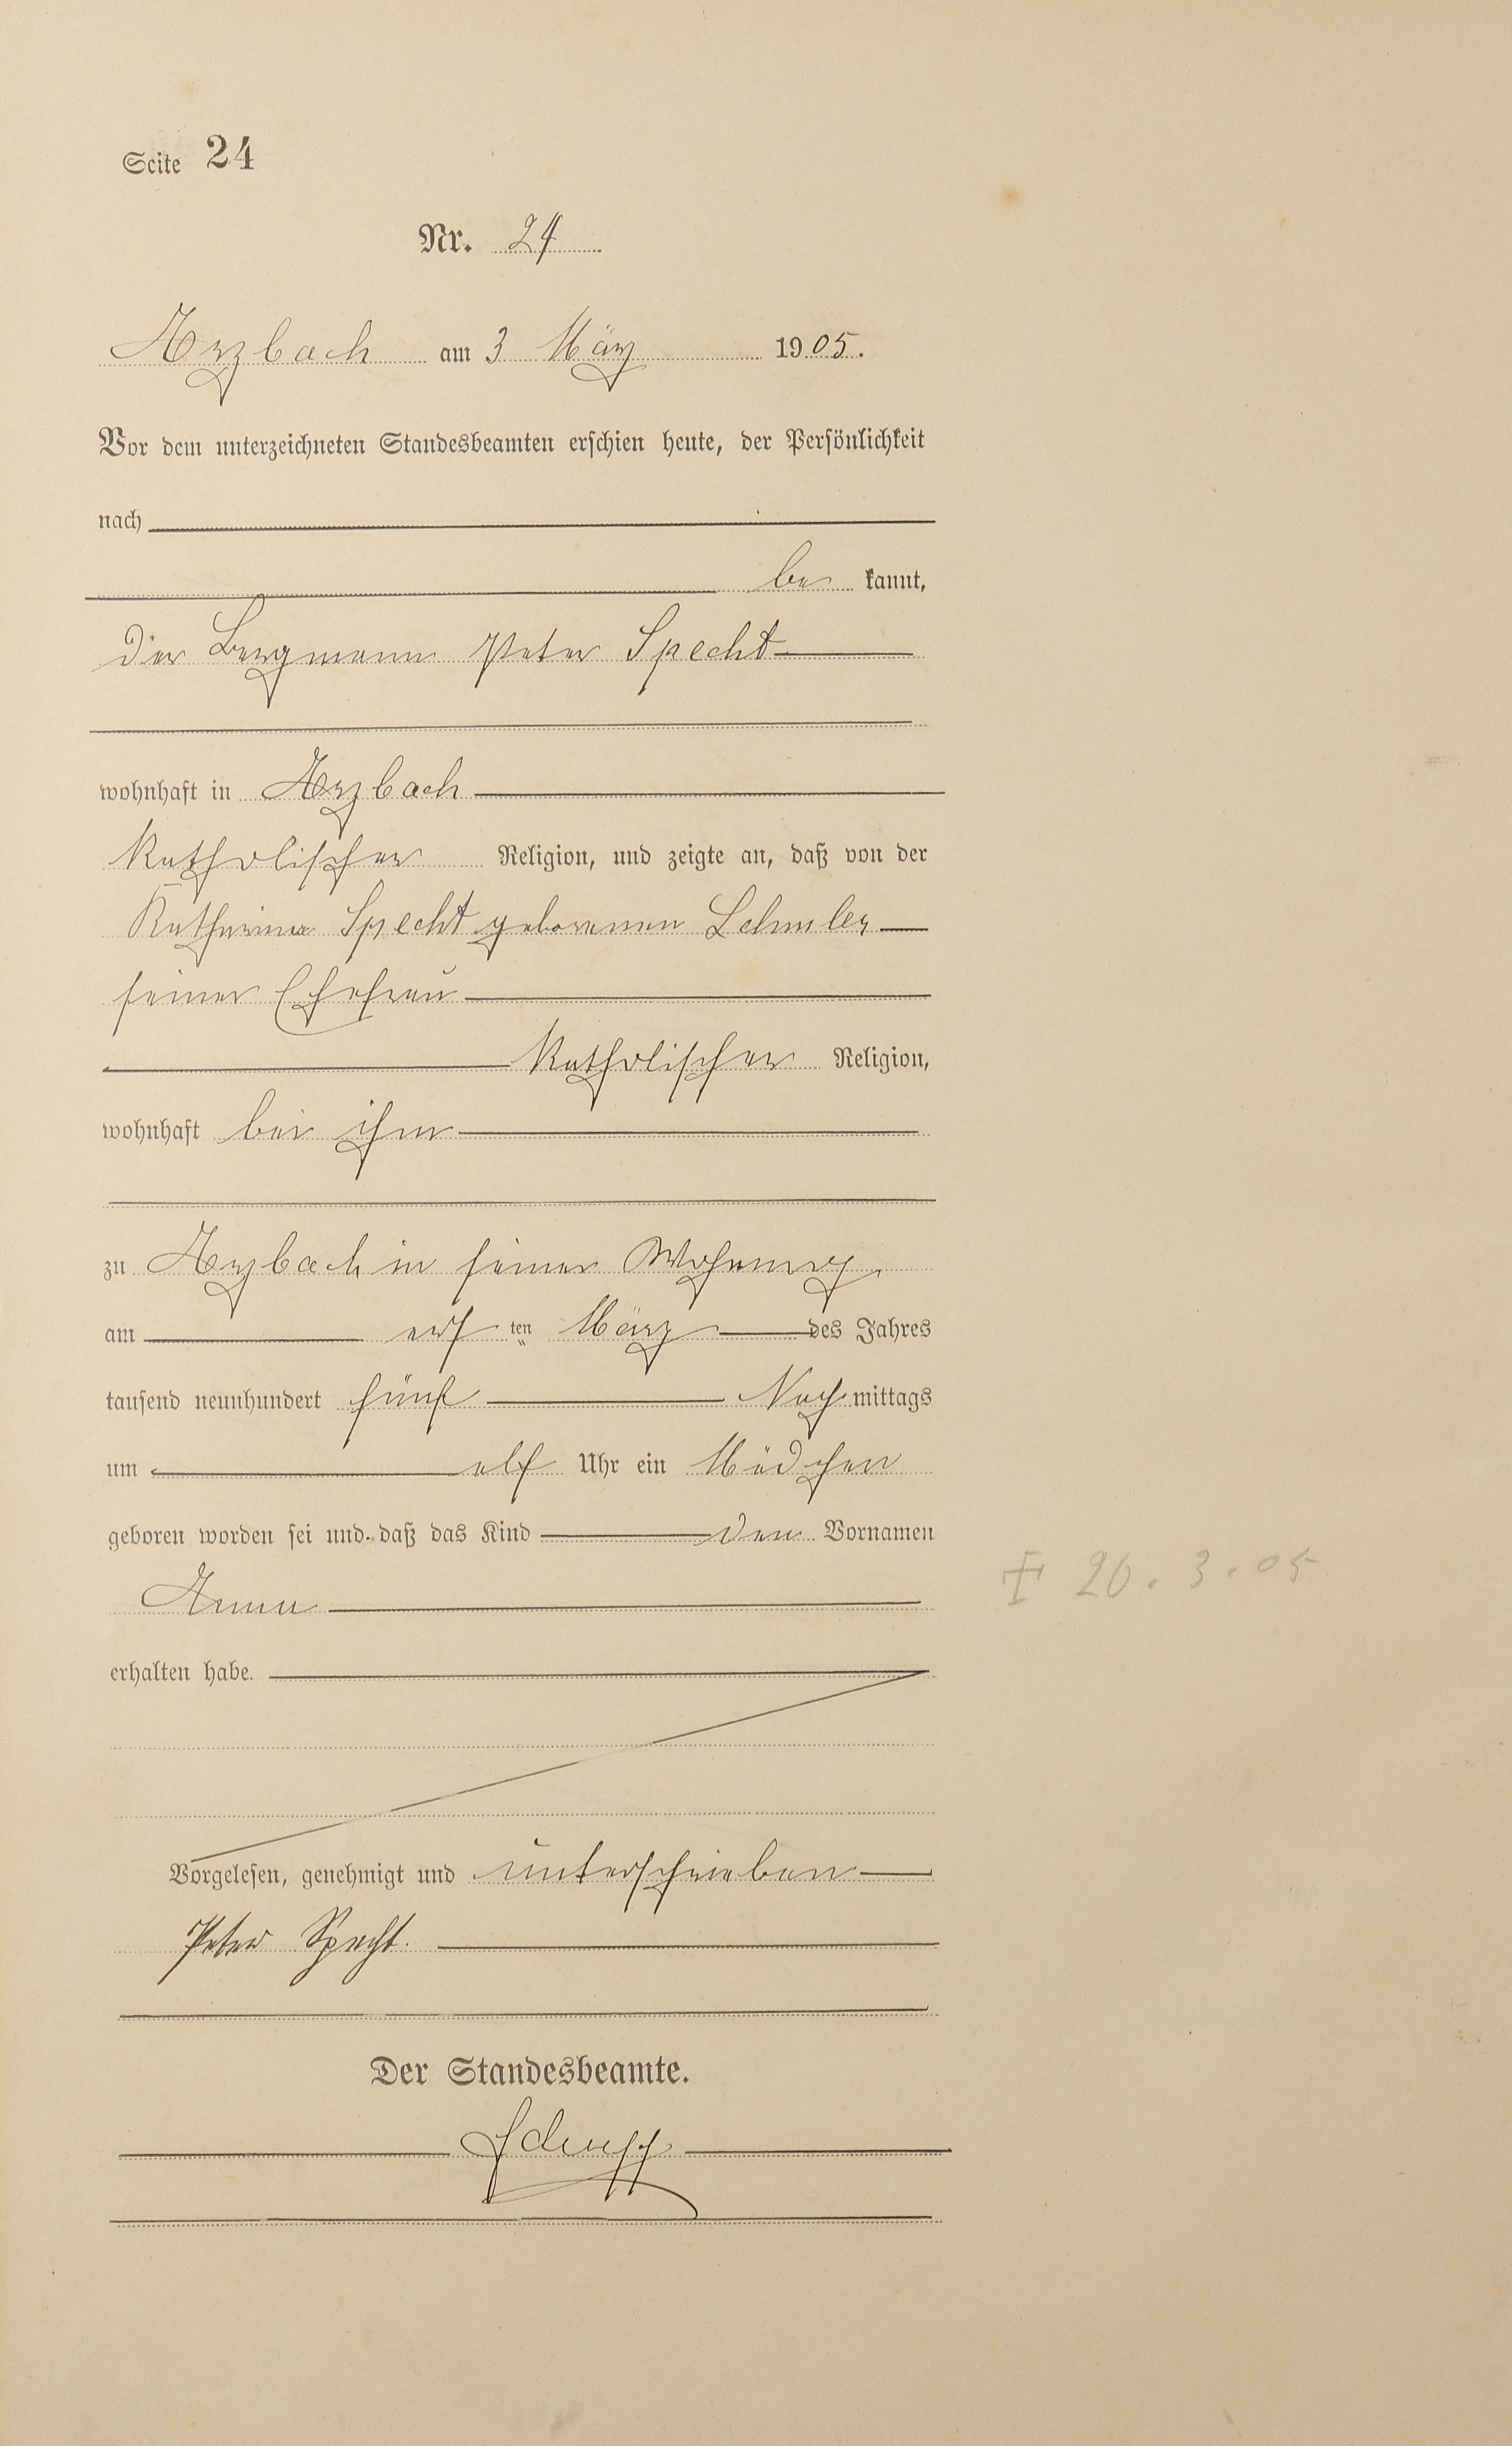 Seite 24
Nr. 24
Arzbach am 3 März 1905.
Vor dem unterzeichneten Standesbeamten erschien heute, der Persönlichkeit
nach
be kannt,
der Bergmann Peter Specht
wohnhaft in Arzbach
katholischer Religion, und zeigte an, daß von der
Katharina Specht geborenen
seiner Ehefrau
katholischer Religion,
wohnhaft bei ihm
zu Arzbach in seiner Wohnung
am ersten März des Jahres
tausend neunhundert fünf Nachmittags
um elf Uhr ein Mädchen
geboren worden sei und daß das Kind den Vornamen
Anna
± 20.3.05
erhalten habe.
Vorgelesen, genehmigt und unterschrieben
Peter Specht.
Der Standesbeamte.